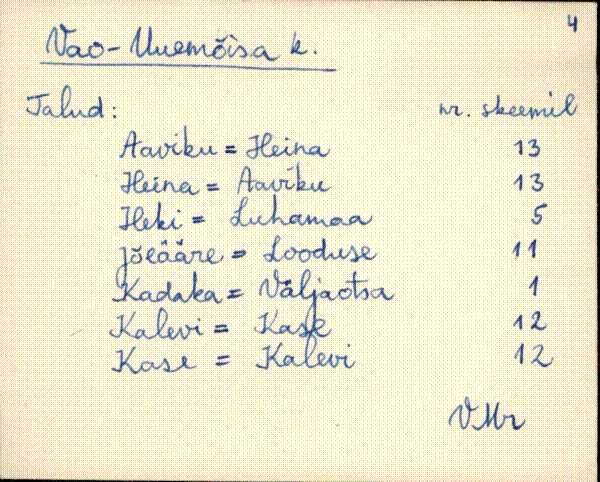 4
Vao-Uuemõisa k.
Talud: nr. skeemil
Aaviku = Heina 13
Heina = Aaviku 13
Heki = Luhamaa 5
Jõeääre = Looduse 11
Kadaka = Väljaotsa 1
Kalevi = Kask 12
Kase = Kalevi 12
VMr